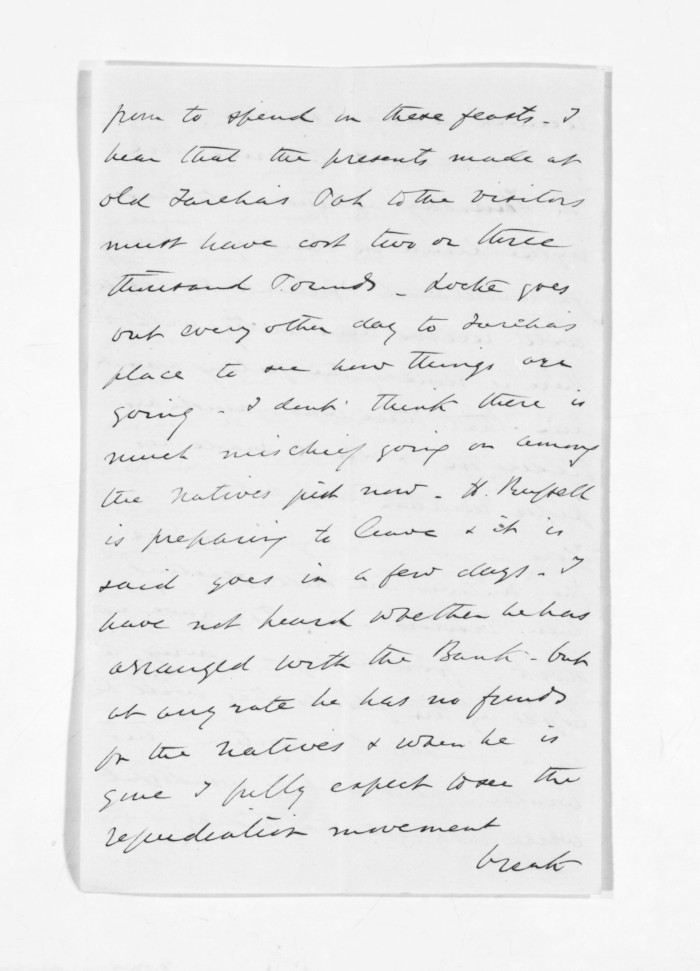 from to spend on these feasts - I
hear that the presents made at
old Tareha's Pah to the visitors
must have cost two or three
thousand Pounds - Locke goes
out every other day to Tareha's
place to see how things are
going - I dont think there is
much mischief going on among
the Natives just now - H. Russell
is preparing to leave & it is
said goes in a few days - I
have not heard whether he has
arranged with the Bank - but
at any rate he has no funds
for the Natives & when he is
gone I fully expect to see the
repudiation movement
break